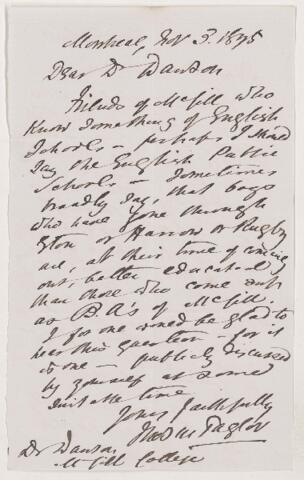 Montreal, Nov 3. 1875
Dear Dr Dawson
Friends of McGill who
know something of English
Schools — perhaps I should
say the English Public
Schools — sometimes
broadly say, that boys
who have gone through
Eton or Harrow or Rugby
are, at their time of coming
out, better educated
than those who come out
as B.A's of McGill.
I for one would be glad to
hear this question — for it
is one — publicly discussed
by yourself at some
suitable time.
Yours faithfully
Taylor
Dr Dawson
McGill College